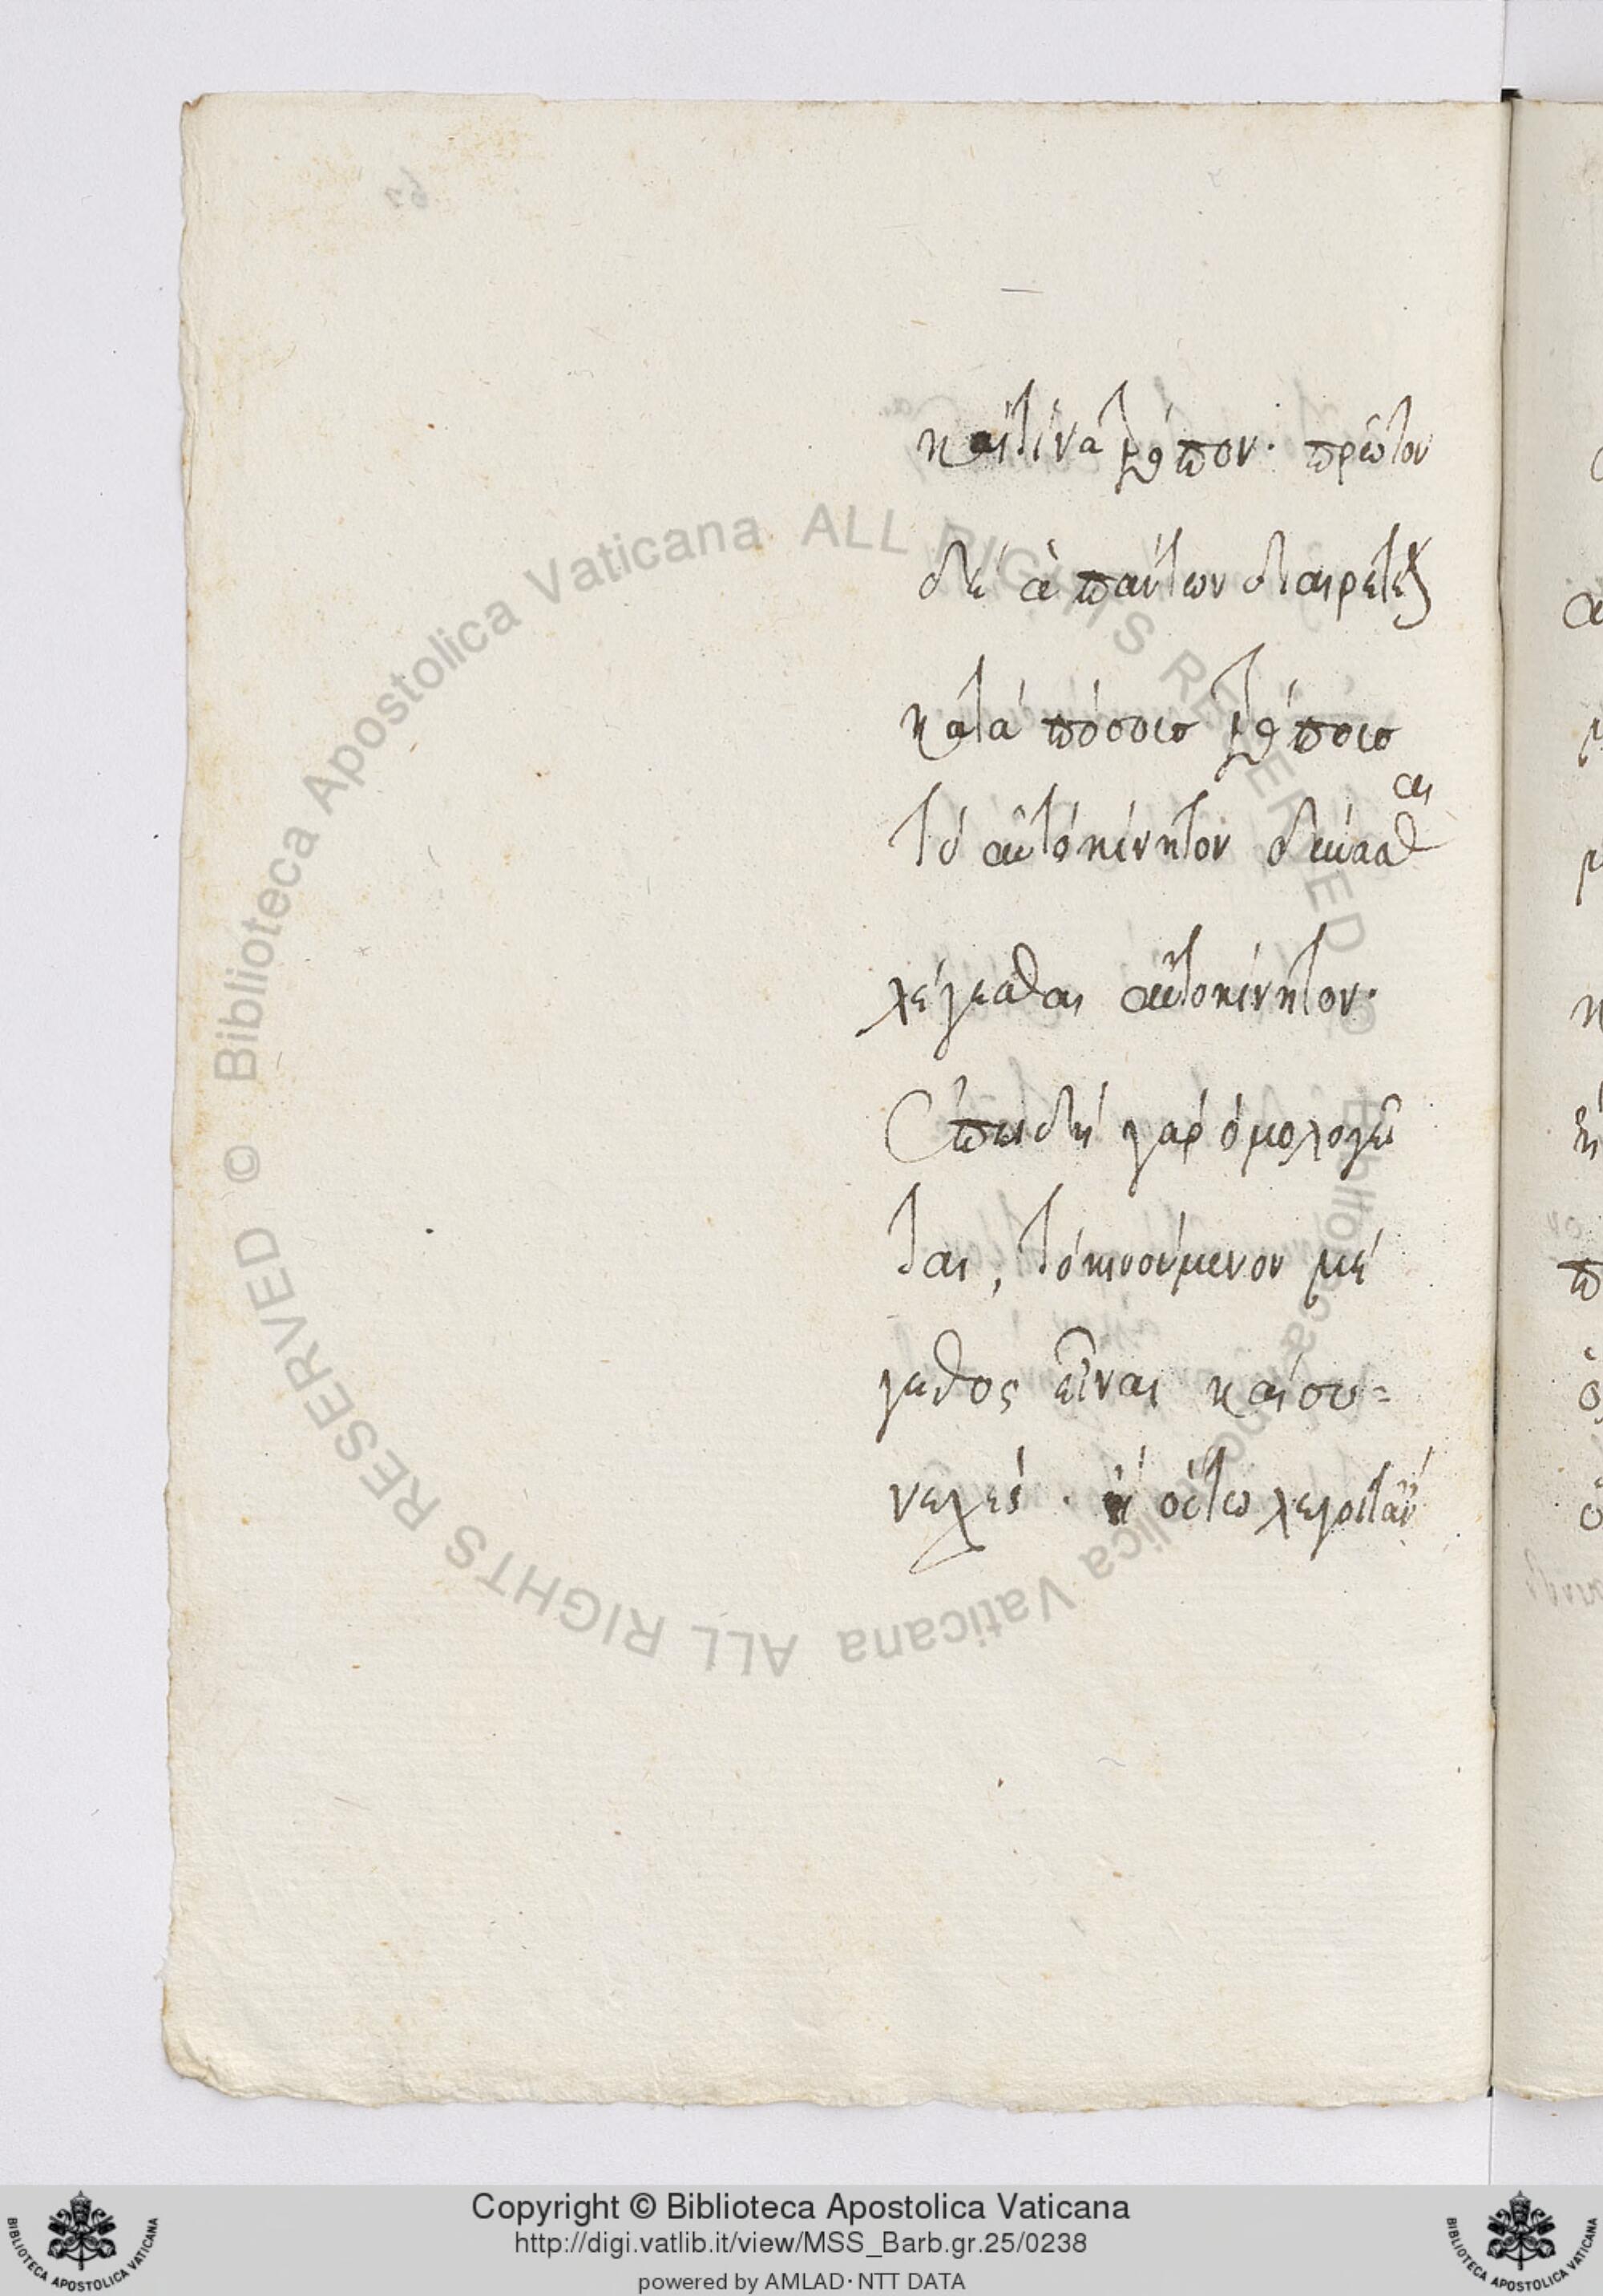 καὶ τίνα τρόπον· πρῶτον
δὲ ἁπάντων διαιρετέον
κατὰ πόσους τρόπους
τὸ αὐτοκίνητον δύναται
λέγεσθαι αὐτοκίνητον·
Ἐπειδὴ γὰρ ὁμολογεῖ
ται, τὸ κινούμενον μέ
γεθος εἶναι καὶ συ=
νεχές· ἢ οὕτω λέγοιτ' ἂν
© Biblioteca Apostolica Vaticana ALL RIGHTS RESERVED
© Biblioteca Apostolica Vaticana ALL RIGHTS RESERVED
Copyright © Biblioteca Apostolica Vaticana
http://digi.vatlib.it/view/MSS_Barb.gr.25/0238
powered by AMLAD·NTT DATA
BIBLIOTECA APOSTOLICA VATICANA
BIBLIOTECA APOSTOLICA VATICANA